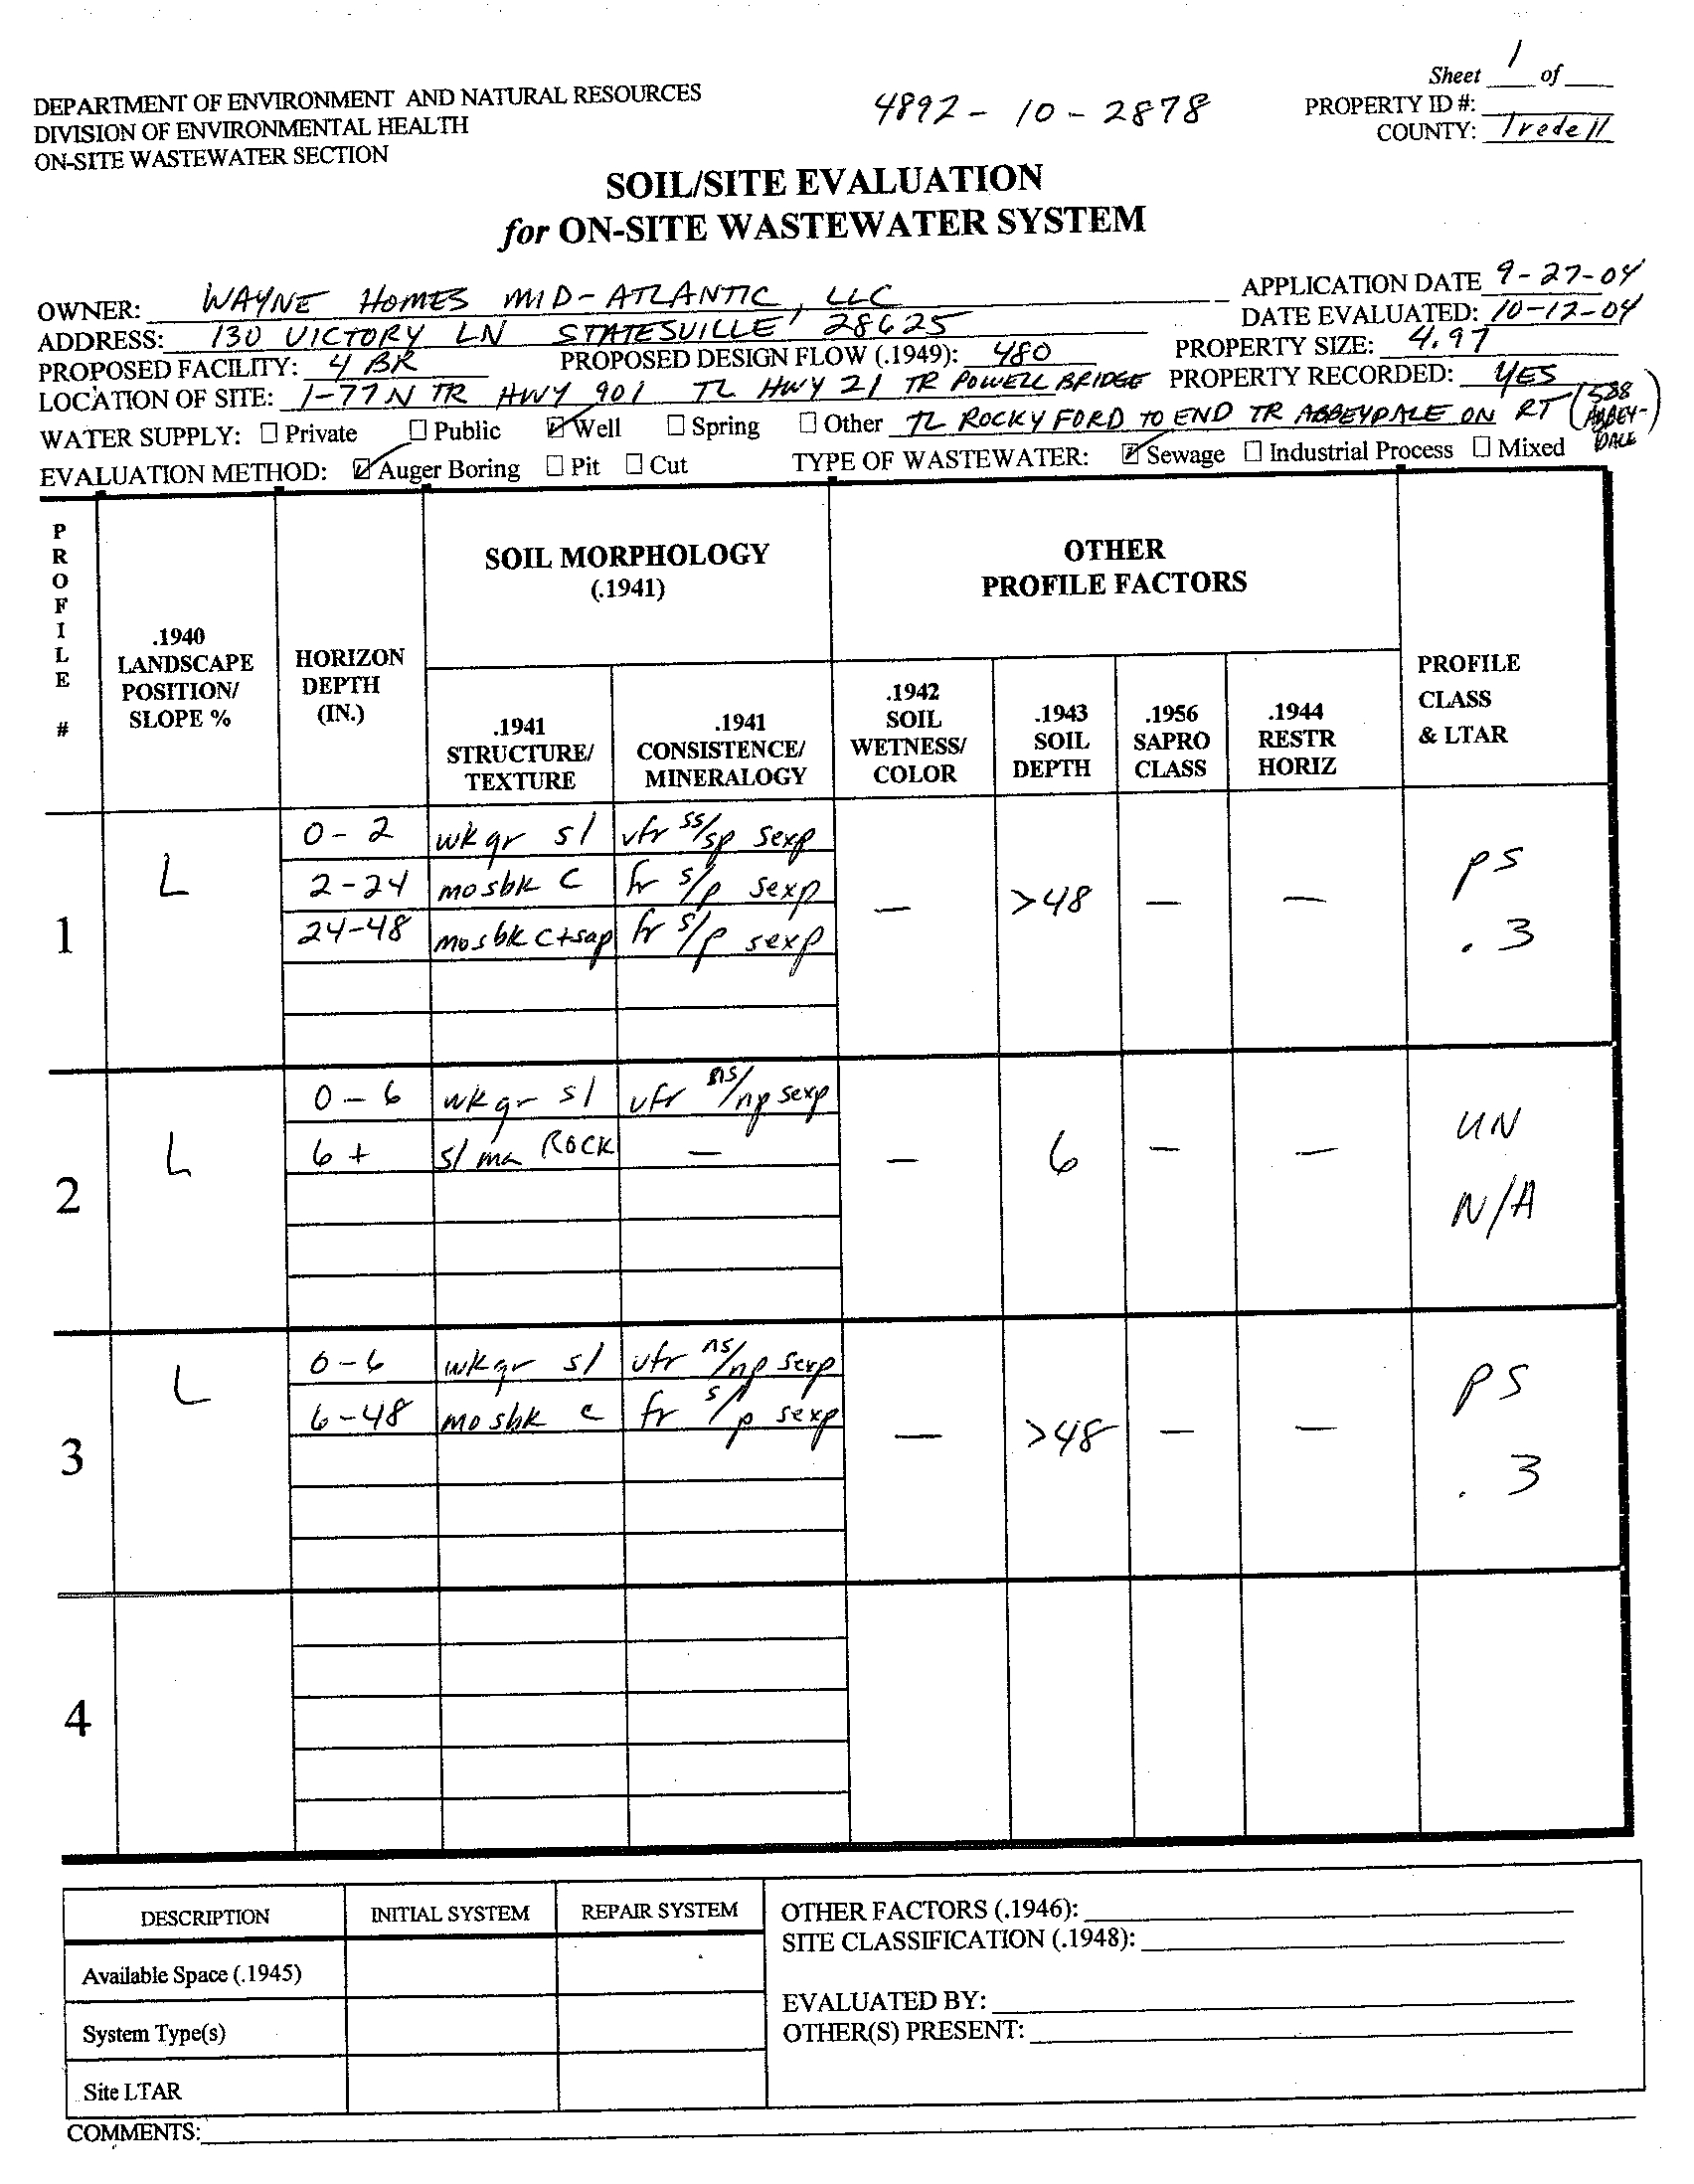 Sheet 1 of
DEPARTMENT OF ENVIRONMENT AND NATURAL RESOURCES
4892-10-2878
PROPERTY ID #:
DIVISION OF ENVIRONMENTAL HEALTH
COUNTY: Iredell
ON-SITE WASTEWATER SECTION
SOIL/SITE EVALUATION
for ON-SITE WASTEWATER SYSTEM
OWNER: WAYNE HOMES MID-ATLANTIC, LLC APPLICATION DATE 9-27-04
ADDRESS: 130 VICTORY LN STATESVILLE 28625 DATE EVALUATED: 10-12-04
PROPOSED FACILITY: 4 BR PROPOSED DESIGN FLOW (.1949): 480 PROPERTY SIZE: 4.97
LOCATION OF SITE: I-77 N TR HWY 901 TL HWY 21 TR POWELL BRIDGE PROPERTY RECORDED: YES
WATER SUPPLY: Private Public Well Spring Other TL ROCKY FORD TO END TR ABBEYDALE ON RT (588 ABBEY-DALE)
EVALUATION METHOD: Auger Boring Pit Cut TYPE OF WASTEWATER: Sewage Industrial Process Mixed
PROFILE #
.1940 LANDSCAPE POSITION/ SLOPE %
HORIZON DEPTH (IN.)
SOIL MORPHOLOGY (.1941)
.1941 STRUCTURE/ TEXTURE
.1941 CONSISTENCE/ MINERALOGY
OTHER PROFILE FACTORS
.1942 SOIL WETNESS/ COLOR
.1943 SOIL DEPTH
.1956 SAPRO CLASS
.1944 RESTR HORIZ
PROFILE CLASS & LTAR
1 L
0-2 wk gr sl vfr ss/sp sexp
2-24 mo sbk c fr s/p sexp
24-48 mo sbk c+sap fr s/p sexp
— >48 — — PS .3
2 L
0-6 wk gr sl vfr ns/np sexp
6+ sl ma ROCK —
— 6 — — UN N/A
3 L
0-6 wk gr sl vfr ns/np sexp
6-48 mo sbk c fr s/p sexp
— >48 — — PS .3
4
DESCRIPTION INITIAL SYSTEM REPAIR SYSTEM
Available Space (.1945)
System Type(s)
Site LTAR
OTHER FACTORS (.1946):
SITE CLASSIFICATION (.1948):
EVALUATED BY:
OTHER(S) PRESENT:
COMMENTS: